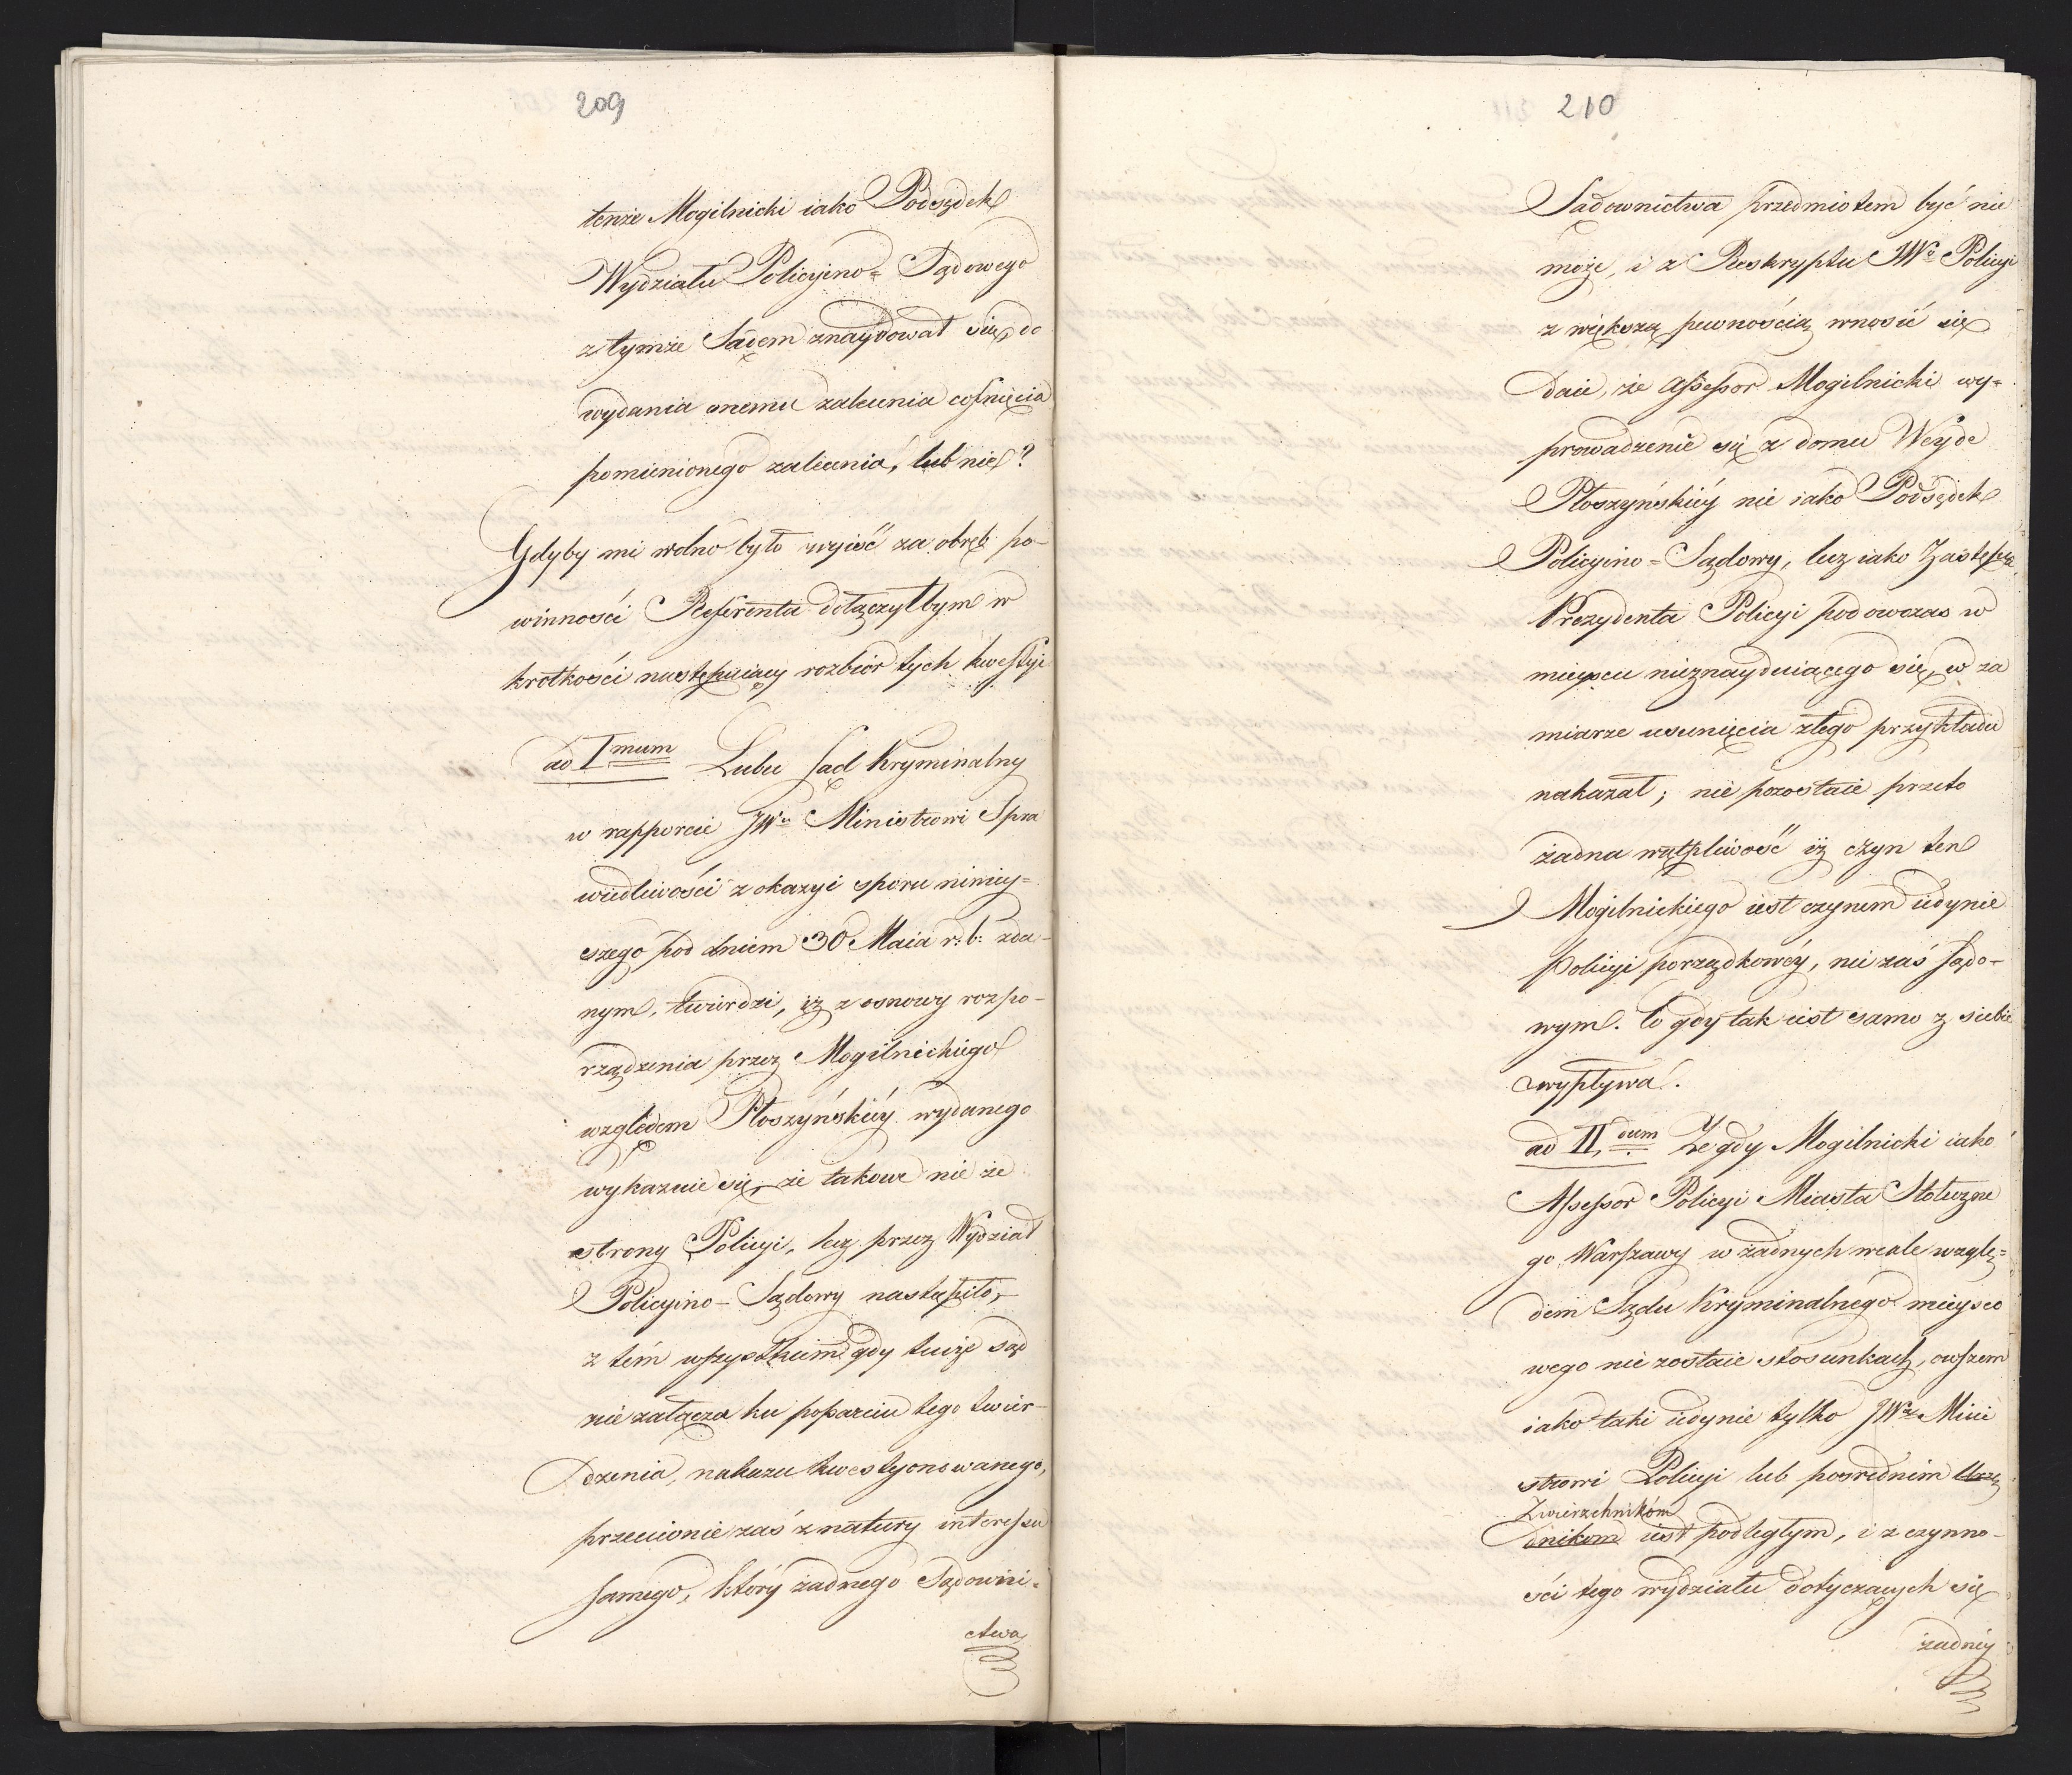 209
tenże Mogilnicki iako Podsędek
Wydziału Policyino-Sądowego
z tymże Sądem znaydował się, do
wydania onemu zalecenia cofnięcia
pomienionego zalecenia, lub nie?
Gdyby mi wolno było wyiść za obręb po-
winności Referenta dołączyłbym w
krotkości następuiący rozbiór tych kwestyi
ad I mum Lubo Sąd Kryminalny
w rapporcie JWu Ministrowi Spra
wiedliwości z okazyi sporu niniey-
szego pod dniem 30 Maia r. b. zda-
nym, twierdzi, iż z osnowy rozpo-
rządzenia przez Mogilnickiego
względem Płoszyńskiéy wydanego
wykazuie się, że takowe nie ze
strony Policyi, lecz przez Wydział
Policyino-Sądowy nastąpiło,
z tém wszystkiem gdy tenże sąd
nie załącza ku poparciu tego twier-
dzenia, nakazu kwestyonowanego,
przeciwnie zaś z natury interessu
samego, który żadnego Sądowni-
ctwa
210
Sądownictwa przedmiotem być nie
może, i z Reskryptu JWo Policyi
z większą pewnością wnosić się
daie, że Assessor Mogilnicki wy-
prowadzenie się z domu Weyde
Płoszyńskiéy nie iako Podsędek
Policyino-Sądowy, lecz iako Zastępca
Prezydenta Policyi podowczas w
mieyscu nieznayduiącego się, w za
miarze usunięcia złego przykładu
nakazał; nie pozostaie przeto
żadna wątpliwość iż czyn ten
Mogilnickiego iest czynem iedynie
Policyi porządkowéy, nie zaś Sądo-
wym. To gdy tak iest samo z siebie
wypływa.
ad II dum Że gdy Mogilnicki iako
Assessor Policyi Miasta Stołeczne
go Warszawy w żadnych wcale wzglę-
dem Sądu Kryminalnego mieysco
wego nie zostaie stosunkach, owszem
iako taki iedynie tylko JWu Mini
strowi Policyi lub posrednim Urzę
Zwierzchnikom
dnikom iest podległym, i z czynno-
ści tego wydziału dotyczących się
żadnéy